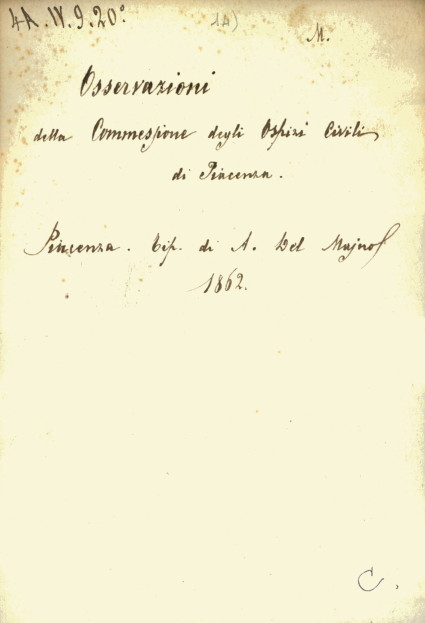 4A.IV.9.20°
14)
M.
Osservazioni
della Commessione degli Ospizi Civili
di Piacenza.
Piacenza. Tip. di A. Del Majno
1862.
C.